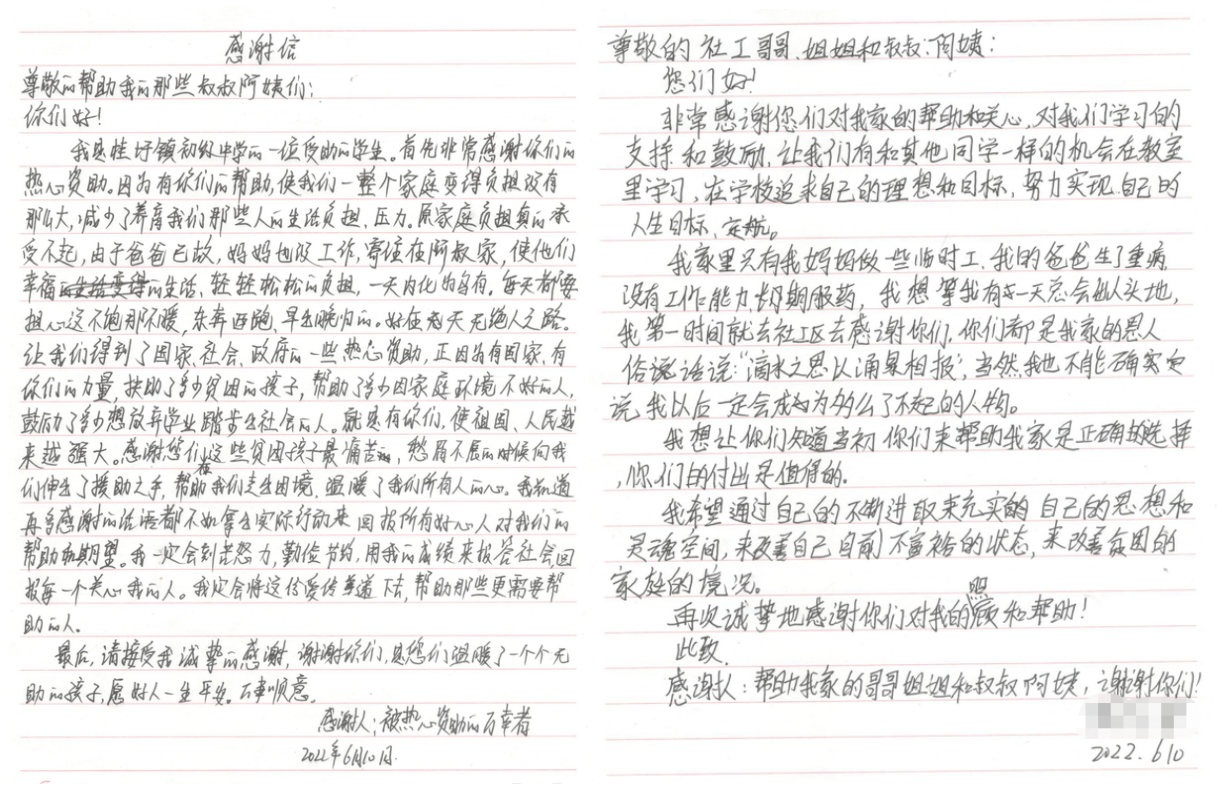 感谢信
尊敬的帮助我的那些叔叔阿姨们：
你们好！
我是桂圩镇初级中学的一位受助的学生。首先非常感谢你们的
热心资助。因为有你们的帮助，使我们一整个家庭变得负担没有
那么大，减少了养育我们那些人的生活负担、压力。原家庭负担真的承
受不起，由于爸爸已故，妈妈也没工作，寄住在阿叔家，使他们
幸福的生活、轻轻松松的负担，一天内化为乌有。每天都要
担心这不饱那不暖，东奔西跑，早出晚归的。好在老天无绝人之路。
让我们得到了国家、社会、政府的一些热心资助，正因为有国家、有
你们的力量，扶助了多少贫困的孩子，帮助了多少因家庭环境不好的人，
鼓励了多少想放弃学业踏步出社会的人。就是有你们，使祖国、人民越
来越强大。感谢您们在这些贫困孩子最痛苦的，愁眉不展的时候向我
们伸出了援助之手，帮助我们走出困境，温暖了我们所有人的心。我知道
再多感谢的话语都不如拿出实际行动来回报所有好心人对我们的
帮助和期望。我一定会刻苦努力，勤俭节约，用我的成绩来报答社会，回
报每一个关心我的人。我定会将这份爱传道下去，帮助那些更需要帮
助的人。
最后，请接受我诚挚的感谢，谢谢你们，是您们温暖了一个个无
助的孩子，愿好人一生平安。万事顺意。
感谢人：被热心资助的万幸者
2022年6月10日.
尊敬的社工哥哥、姐姐和叔叔、阿姨：
您们好！
非常感谢您们对我家的帮助和关心，对我们学习的
支持和鼓励，让我们有和其他同学一样的机会在教室
里学习，在学校追求自己的理想和目标，努力实现自己的
人生目标、定航。
我家里只有我妈妈做一些临时工，我的爸爸生了重病
没有工作能力，长期服药，我想等我有一天总会出人头地，
我第一时间就去社工区去感谢你们，你们都是我家的恩人
俗说话说：“滴水之恩以涌泉相报”，当然我也不能确实定
说，我以后一定会成为多么了不起的人物。
我想让你们知道当初你们来帮助我家是正确的选择
，你们的付出是值得的。
我希望通过自己的不断进取来充实的自己的思想和
灵魂空间，来改善自己目前不富裕的状态，来改善贫困的
家庭的境况。
再次诚挚地感谢你们对我的照顾和帮助！
此致.
感谢人：帮助我家的哥哥姐姐和叔叔阿姨，谢谢你们！
2022.6 10